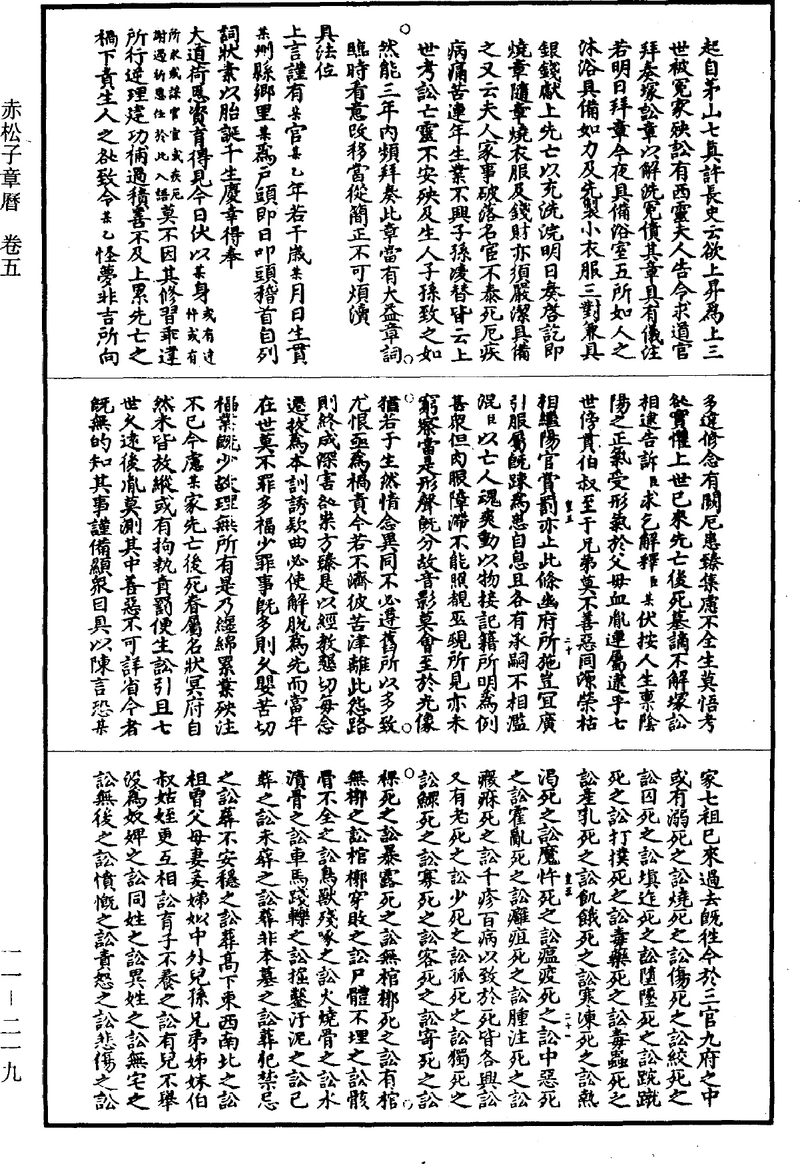 赤松子章曆　卷五
一一－二一九
起自茅山七真許長史云欲上昇為上三
世被冤家殃訟有西靈夫人告令求道官
拜奏塚訟章以解洗冤債其章具有儀注
若明日拜章今夜具備浴室五所如人之
沐浴具備如力及先製小衣服三對兼具
銀錢獻上先亡以充洗浣明日奏啓訖即
燒章隨章燒衣服及錢財亦須嚴潔具備
之又云夫人家事破落名官不泰死厄疾
病痛苦連年生業不興子孫淩替皆云上
世考訟亡靈不安殃及生人子孫致之如
然能三年內頻拜奏此章當有大益章詞
臨時看意改移當從簡正不可煩瀆
具法位
上言謹有某官某乙年若干歲某月日生貫
某州縣鄉里某為戶頭即日叩頭稽首自列
詞狀素以胎誕千生慶幸得奉
大道荷恩資育得見今日伏以某身
莫不因其修習乖違
所行逆理建功補過積善不及上累先亡之
禍下責生人之訟致令某乙怪夢非吉所向
多違修念有關厄患臻集慮不全生莫悟考
訟實懼上世已來先亡後死墓謫不解塚訟
相逮告訴臣求乞解釋臣某伏按人生稟陰
陽之正氣受形氣於父母血胤連屬遞乎七
世傍貫伯叔至于兄弟莫不善惡同源榮枯
相繼陽官賞罰亦止此條幽府所施豈宜廣
引服屬既踈為患自息且各有承嗣不相濫
混且以亡人魂爽動以物接記籍所明為例
甚眾但肉眼障滯不能照覩巫覡所見亦未
窮察當是形聲既分故音影莫會至於光像
猶若于生然情念異同不必遵舊所以多致
尤恨亟為禍責今若不濟彼苦津離此怨路
則終成深害訟祟方臻是以經教懇切每念
遷拔為本訓誘欵曲必使解脫為先而當年
在世莫不罪多福少罪事既多則久嬰苦切
福業既少故理無所有是乃纏綿累業殃注
不已今慮某家先亡後死眷屬名狀冥府自
然未皆放縱或有拘執責罰便生訟引且七
世久遠後胤莫測其中善惡不可詳省今者
既無的知其事謹備顯眾目具以陳言恐某
家七祖已來過去既往今於三官九府之中
或有溺死之訟燒死之訟傷死之訟絞死之
訟囚死之訟填迮死之訟墮墜死之訟踠蹴
死之訟打撲死之訟毒藥死之訟毒蟲死之
訟產乳死之訟飢餓死之訟寒凍死之訟熱
渴死之訟魔忤死之訟瘟疫死之訟中惡死
之訟霍亂死之訟癰疽死之訟腫注死之訟
癥痳死之訟千疹百病以致於死皆各興訟
又有老死之訟少死之訟孤死之訟獨死之
訟鰥死之訟寡死之訟客死之訟寄死之訟
裸死之訟暴露死之訟無棺槨死之訟有棺
無槨之訟棺槨穿敗之訟尸體不埋之訟骸
骨不全之訟鳥獸殘啄之訟火燒骨之訟水
漬骨之訟車馬踐轢之訟掘鑿汙泥之訟已
葬之訟未葬之訟葬非本墓之訟葬犯禁忌
之訟葬不安穩之訟葬高下東西南北之訟
祖曾父母妻妾娣姒中外兒孫兄弟姊妹伯
叔姑姪更互相訟有子不養之訟有兒不舉
沒為奴婢之訟同姓之訟異姓之訟無宅之
訟無後之訟憤慨之訟責怨之訟悲傷之訟